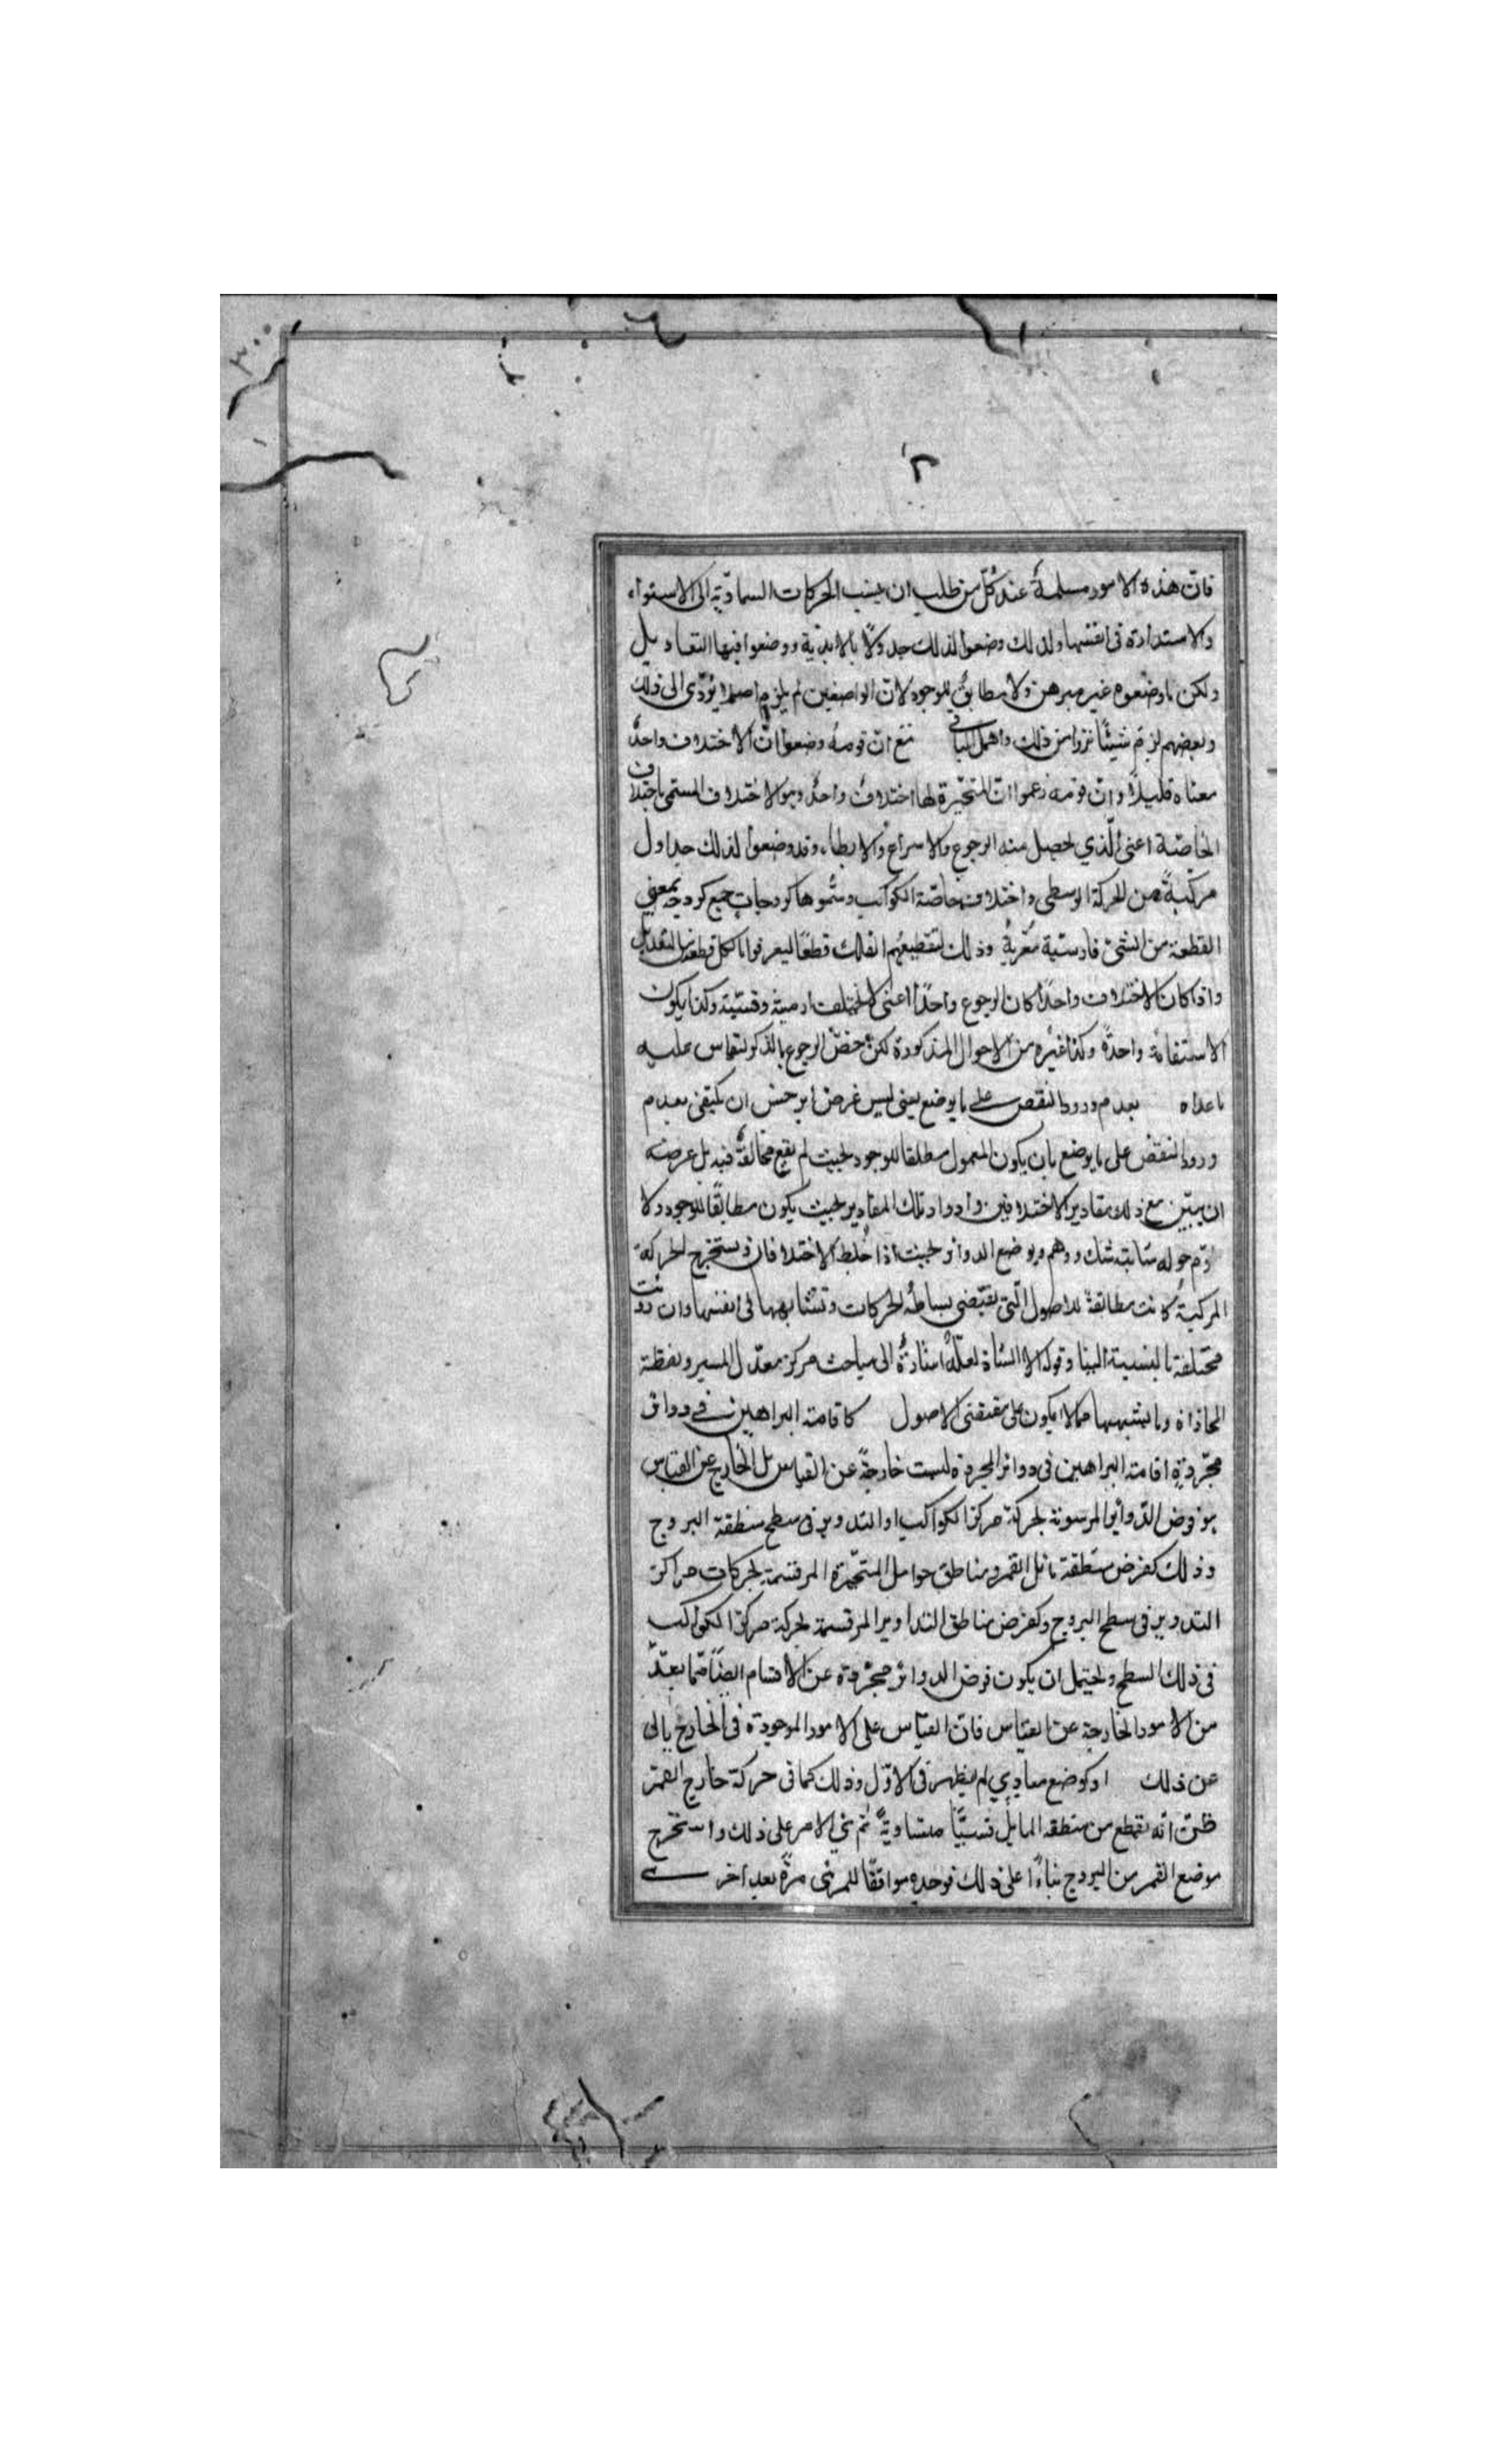 ٣٠٠
٢
فانّ هذه الامور مسلمةٌ عند كلّ من طلب ان ينسب الحركات السماويّة الى الاستواء
والاستدارة فى انفسها ولذلك وضعوا لذلك جدولًا بالابديّة ووضعوا فيها التعاديل
ولكن ما وضعوه غير مبرهن ولا مطابقٌ للوجود لانّ الواضعين لم يلزم اصلا يؤدّى الى ذلك
وبعضهم لزم شيئًا نزرا من ذلك واهمل الباقى مع انّ قومه وضعوا انّ الاختلاف واحدٌ
معناه قليلًا وانّ قومه زعموا انّ المتحيّرة لها اختلافٌ واحدٌ وهو الاختلاف المسمى باختلاف
الخاصّة اعنى الّذي يحصل منه الرجوع والاسراع والابطاء وقد وضعوا لذلك جداول
مركبةً من الحركة الوسطى واختلاف خاصّة الكواكب وسمّوها كردجات جمع كردجه بمعنى
القطعة من الشئ فارسيّة معرّبةٌ وذلك لتقطيعهم الفلك قطعًا ليعرفوا ما لكل قطعة من التعديل
واذا كان الاختلاف واحدًا كان الرجوع واحدًا اعنى لا يختلف ازمنته وقسيّه وكذا يكون
الاستقامة واحدةً وكذا غيره من الاحوال المذكورة لكن خصّ الرجوع بالذكر ليقاس عليه
ما عداه بعدم ورود النقض على ما يوضع يعنى ليس غرض ابرخس ان يكتفى بعدم
ورود النقض على ما يوضع بان يكون المعمول مطلقا للوجود بحيث لم يقع مخالفةٌ فيه بل غرضه
ان يبيّن مع ذلك مقادير الاختلافين وادوار تلك المقادير بحيث يكون مطابقًا للوجود ولا
حوله شائبة شك ووهم ويوضع الدوائر بحيث اذا خلط الاختلافان ويستخرج الحركة
المركبةُ كانت مطابقةً للاصول الّتى تقتضى بساطة الحركات وتشابهها فى انفسها وان رؤيت
مختلفة بالنسبة الينا وقوله لعلّه اشارةٌ الى مباحث مركز معدّل المسير ونقطة
المحاذاة وما يشبهها مما لا يكون على مقتضى الاصول كاقامة البراهين فى دوائر
مجرّدة اقامة البراهين فى دوائر المجردة ليست خارجةً عن القياس بل الخارج عن القياس
هو فرض الدّوائر المرسومة بحركة مركز الكواكب او التدوير فى سطح منطقة البروج
وذلك كفرض منطقة مائل القمر ومناطق حوامل المتحيّرة المرتسمة بحركات مراكز
التدوير فى سطح البروج وكفرض مناطق التداوير المرتسمة بحركة مركز الكواكب
فى ذلك السطح ويحتمل ان يكون فرض الدوائر مجرّدة عن الاجسام ايضًا ممّا يعدّ
من الامور الخارجة عن القياس فانّ القياس على الامور الموجودة فى الخارج يأبى
عن ذلك او كوضع مبادي لم يظهر فى الاوّل وذلك كما فى حركة خارج القمر
ظنّ انّه يقطع من منطقة المايل قسيًّا متساويةً ثم بنى الامر على ذلك واستخرج
موضع القمر من البروج بناءًا على ذلك فوجده موافقًا للمرئى مرّةً بعد اخرى